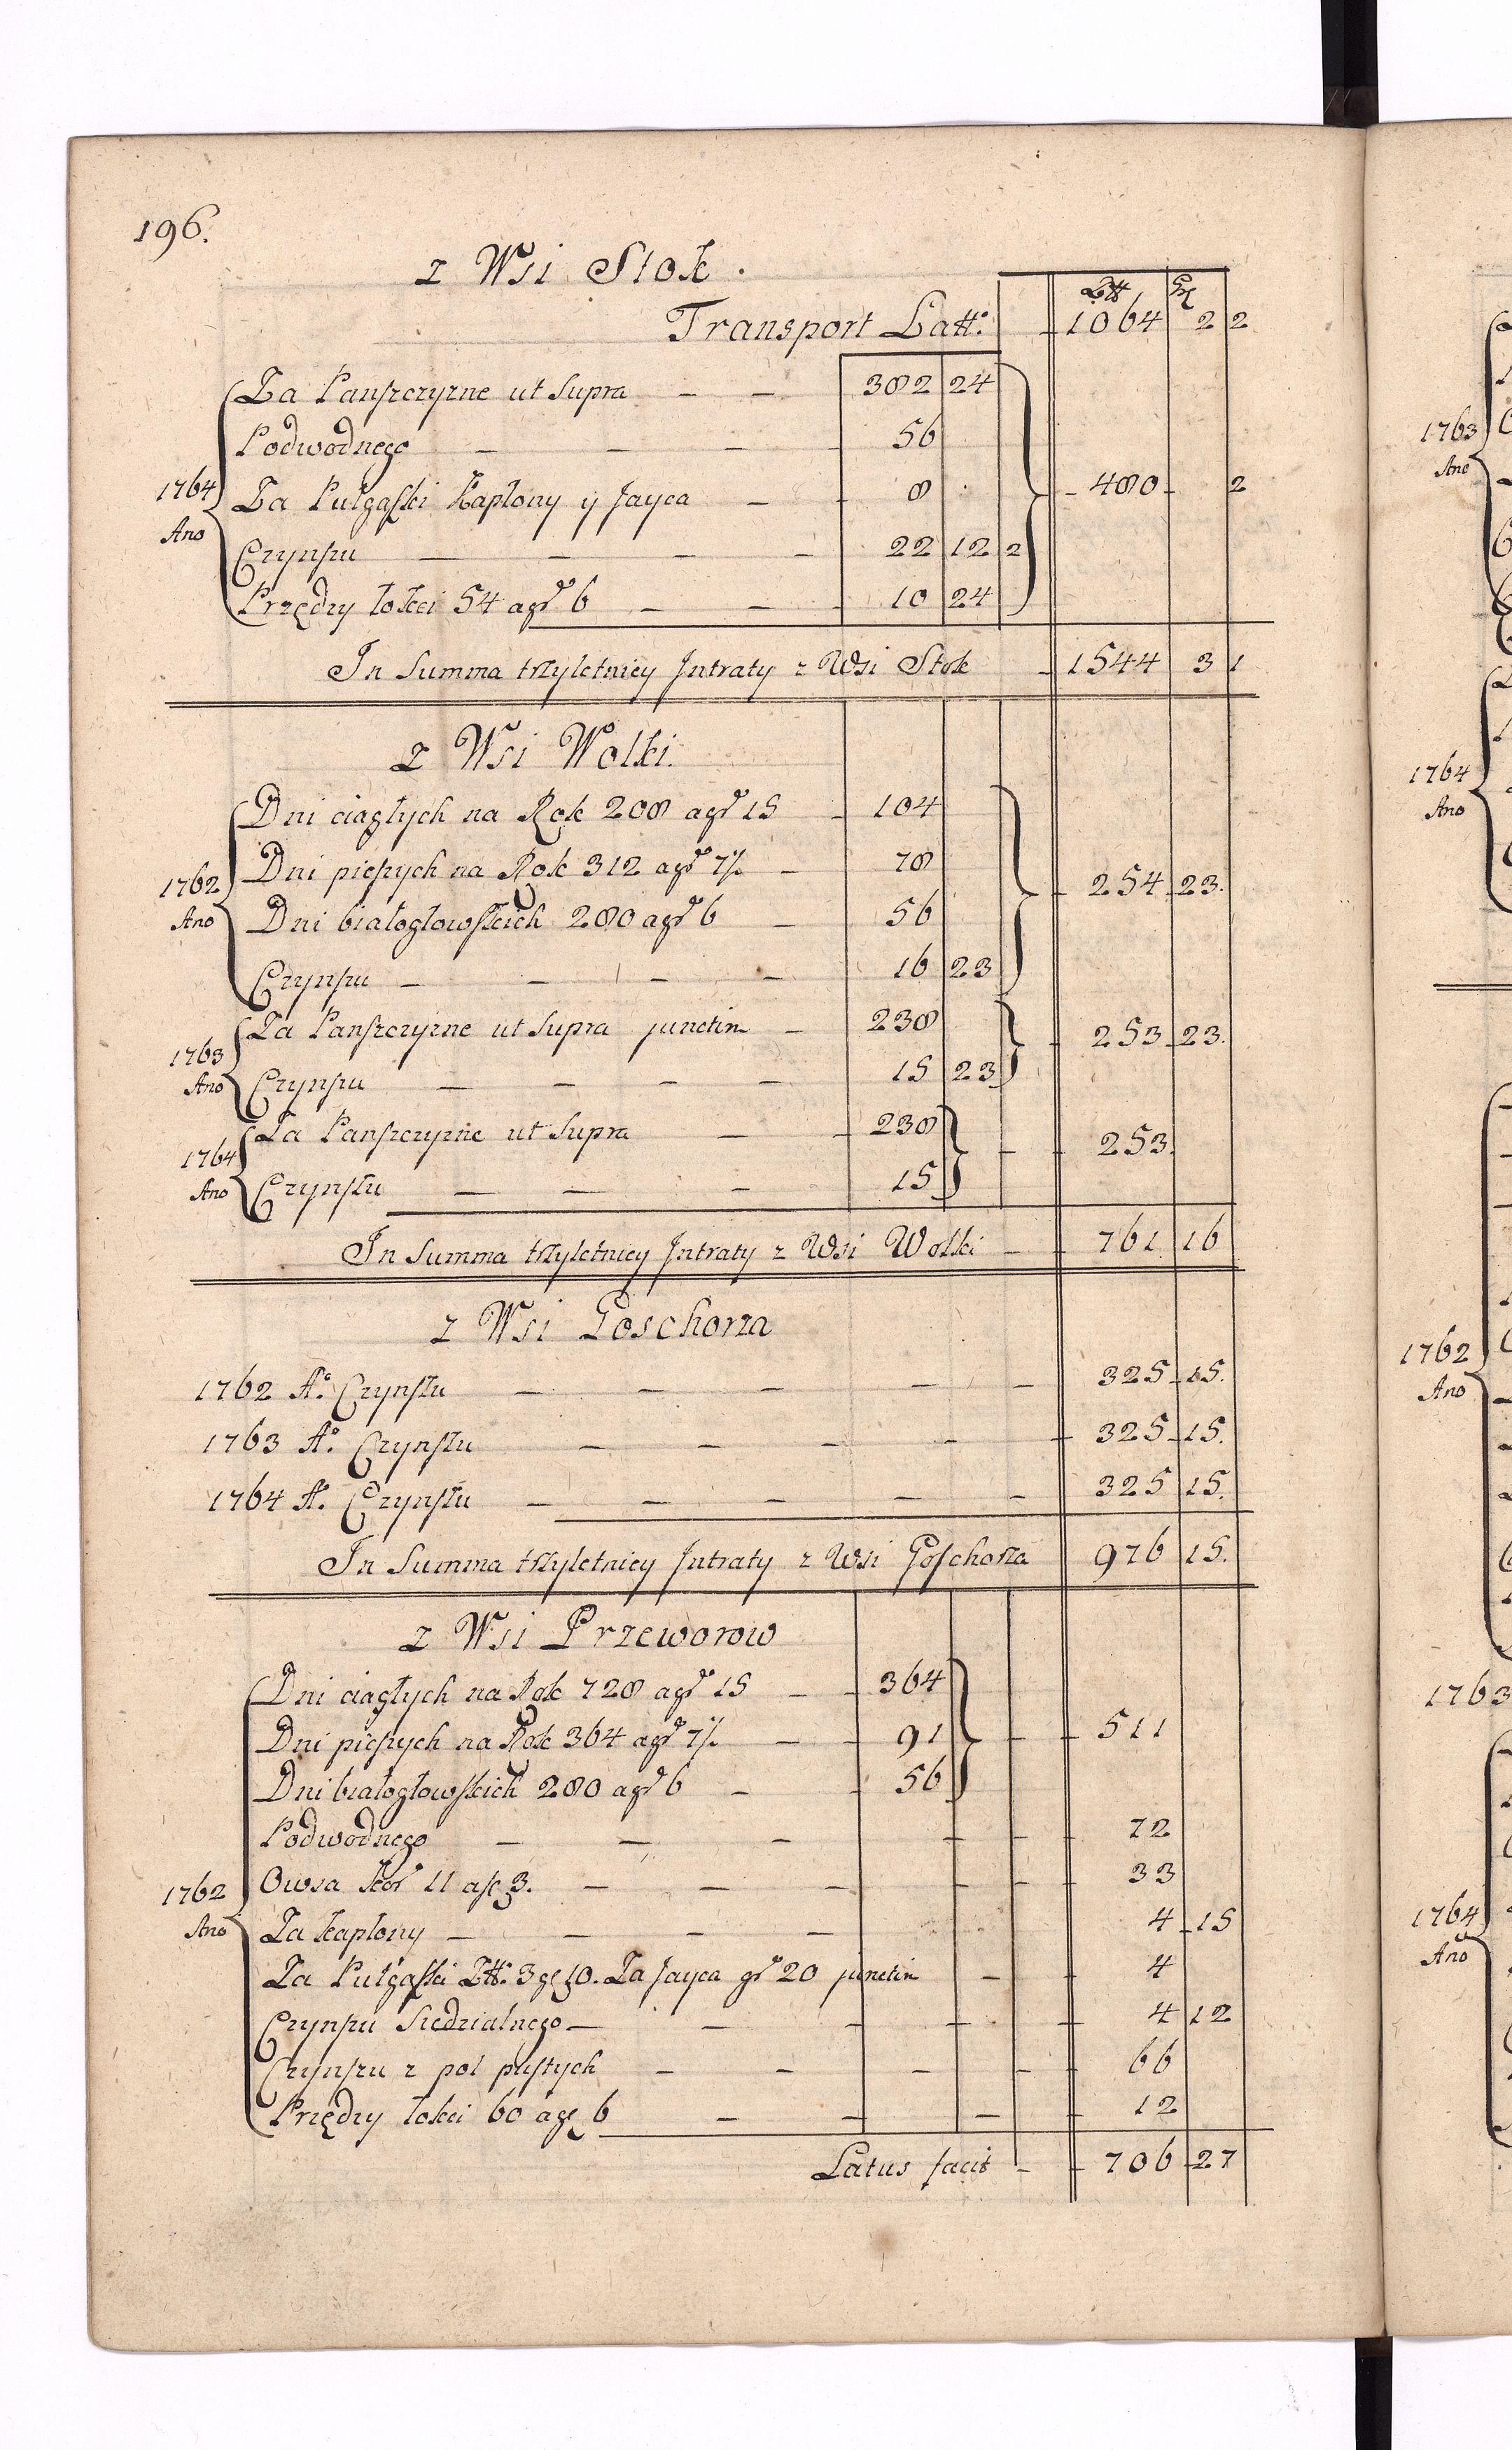 196.
z Wsi Stok.
Ztt gr
Transport Latt: 1064 2 2
Za Panszczyzne ut Supra 382 24
Podwodnego 56
1764 Ano Za Pułgąski Kapłony y Jayca 8 480 2
Czynszu 22 12 2
Przędzy łokci 54 a gr 6 10 24
In Summa trzyletniey Jntraty z Wsi Stok 1544 3 1
z Wsi Wolki.
Dni ciągłych na Rok 208 a gr 15 104
1762 Ano Dni pieszych na Rok 312 a gr 7½ 78 254 23.
Dni białogłowskich 280 a gr 6 56
Czynszu 16 23
Za Panszczyzne ut Supra junctim 238
1763 Ano Czynszu 15 23 253 23.
Za Panszczyzne ut Supra 238
1764 Ano Czynszu 15 253.
In Summa trzyletniey Jntraty z Wsi Wolki 761 16
z Wsi Goschorza
1762 Aº Czynszu 325 15.
1763 Aº Czynszu 325 15.
1764 Aº Czynszu 325 15.
In Summa trzyletniey Jntraty z Wsi Goschorza 976 15.
z Wsi Przeworow
Dni ciągłych na Rok 728 a gr 15 364
Dni pieszych na Rok 364 a gr 7½ 91 511
Dni białogłowskich 280 a gr 6 56
Podwodnego 72
1762 Ano Owsa Kor 11 a 3. 33
Za Kapłony 4 15
Za Pułgąski Ztt. 3 gr 10. Za Jayca gr 20 junctim 4
Czynszu Siedzialnego 4 12
Czynszu z pol pustych 66
Przędzy łokci 60 a gr 6 12
Latus facit 706 27
1763 Ano
1764 Ano
1762 Ano
1763
1764 Ano